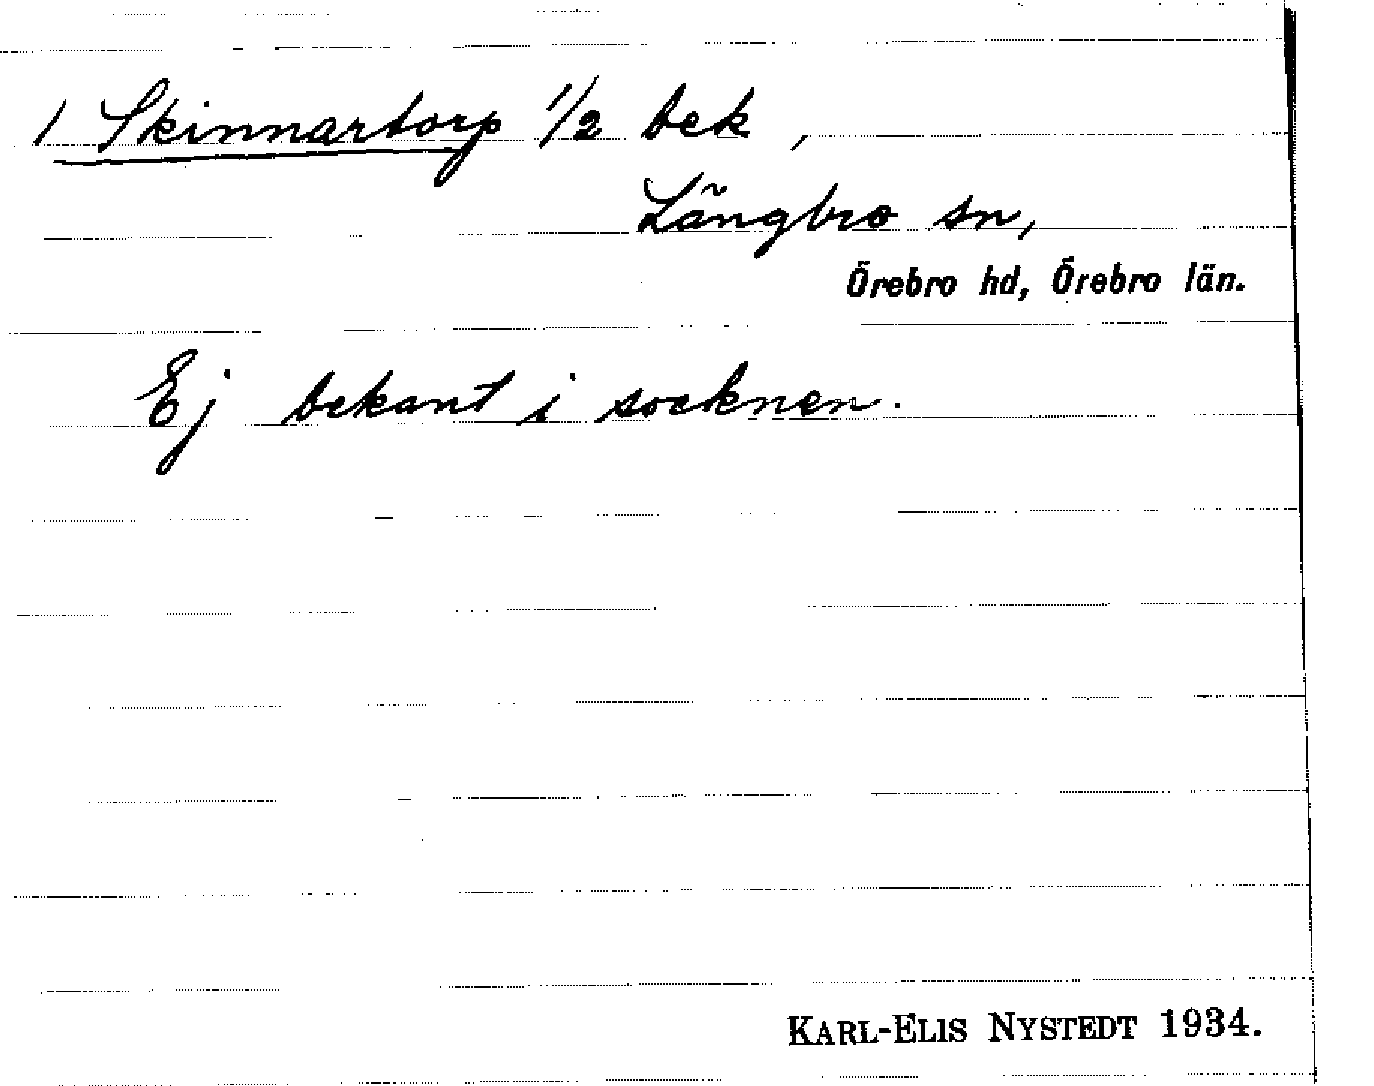 / Skinnartorp 1/2 bek,
Längbro sn,
Örebro hd, Örebro län.
Ej bekant i socknen.
KARL-ELIS NYSTEDT 1934.